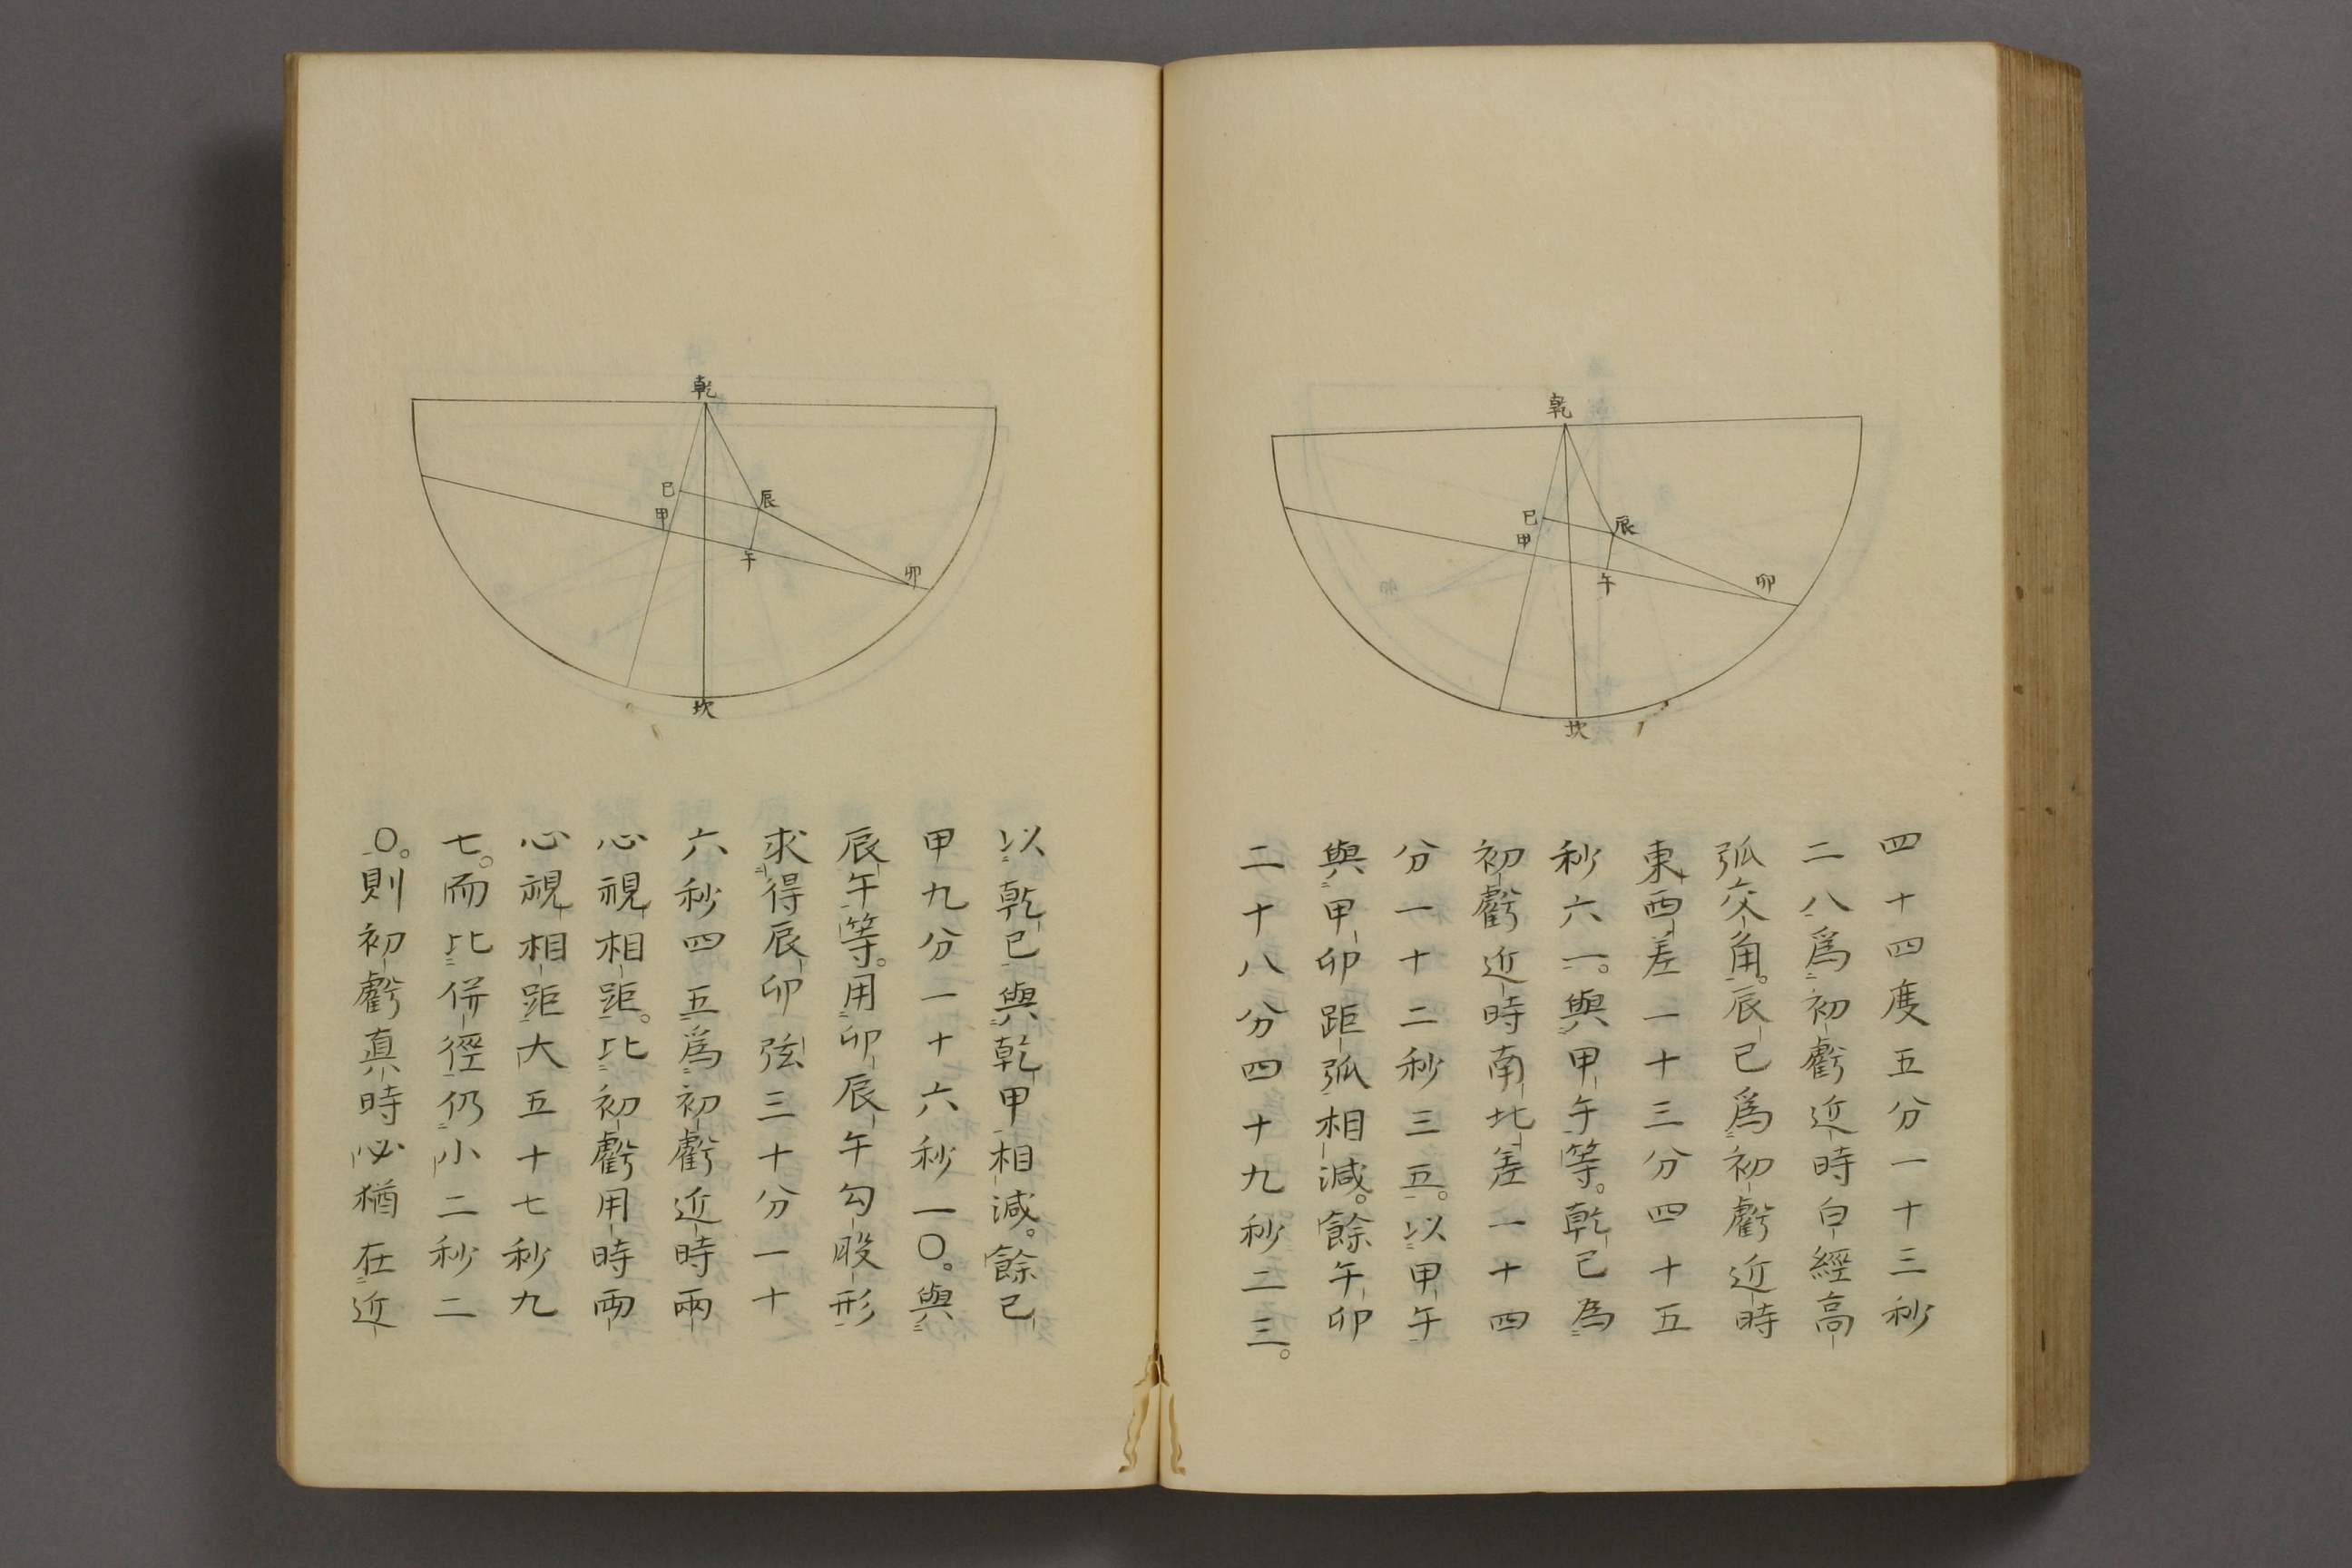 乾
巳
辰
甲
午
卯
坎
四十四度五分一十三秒
二八爲初虧近時白經高
弧交角。辰巳爲初虧近時
東西差一十三分四十五
秒六一。與甲午等。乾巳為
初虧近時南北差一十四
分一十二秒三五。以甲午
與甲卯距弧相減。餘午卯
二十八分四十九秒二三。
乾
巳
辰
甲
午
卯
坎
以乾巳與乾甲相減。餘巳
甲九分一十六秒一〇。與
辰午等。用卯辰午勾股形
求得辰卯弦三十分一十
六秒四五爲初虧近時兩
心視相距。比初虧用時兩
心視相距大五十七秒九
七。而比併徑仍小二秒二
〇。則初虧真時必猶在近